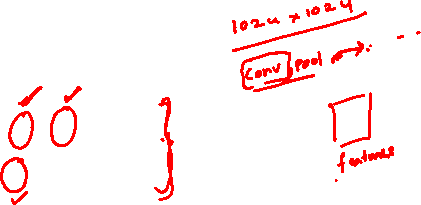 1024 x 1024
Conv, Pool
features